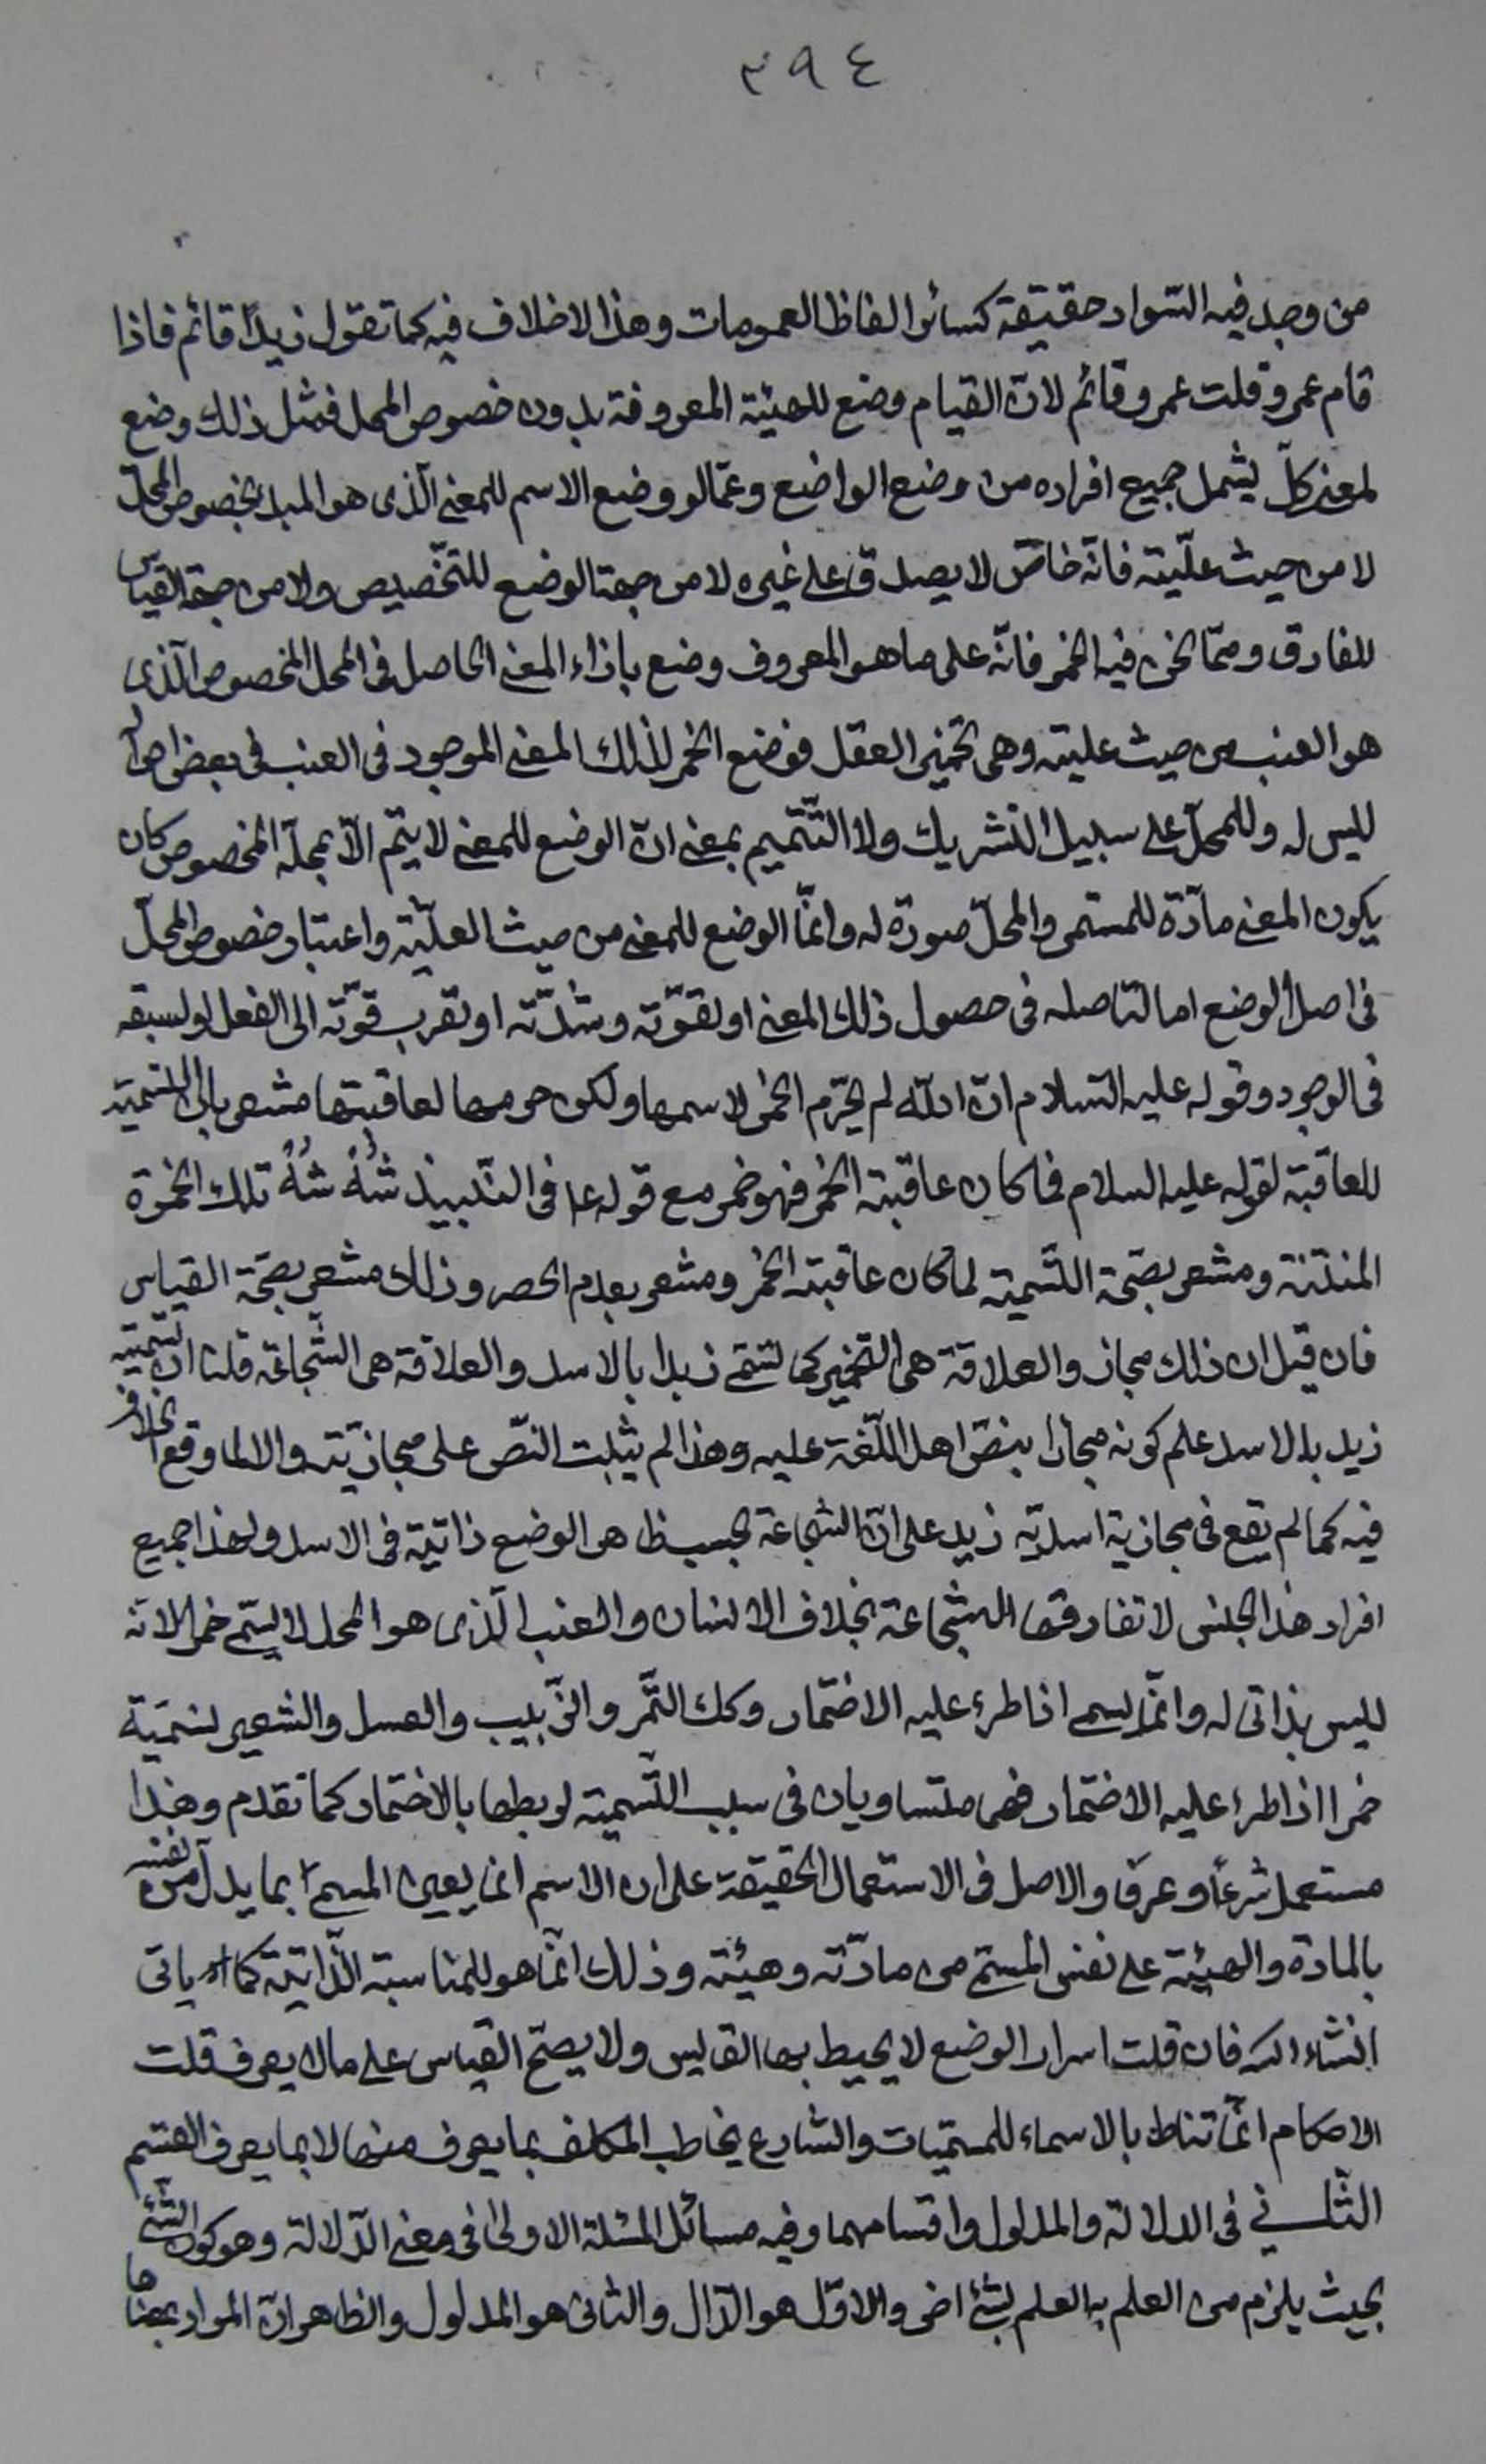 ٣٩٤
من وجد فيه السّواد حقيقة كسائر الفاظ العمومات وهذا لا خلاف فيه كما تقول زيدٌ قائم فاذا
قام عمرو قلت عمرو قائم لانّ القيام وضع للهيئة المعروفة بدون خصوص المحل فمثل ذلك وضع
لمعنى كلّى يشمل جميع افراده من وضع الواضع وعمّا لو وضع الاسم للمعنى الّذى هو المبدء بخصوص المحلّ
لا من حيث علّيته فانّه خاصّ لا يصدق على غيره لا من جهة الوضع للتّخصيص ولا من جهة القياس
للفارق وممّا نحن فيه الخمر فانّه على ما هو المعروف وضع بازاء المعنى الحاصل فى المحل المخصوص الّذى
هو العنب من حيث عليته وهى تخمير العقل فوضع الخمر لذلك المعنى الموجود فى العنب فى بعض احواله
ليس له وللمحلّ على سبيل التشريك ولا التّتميم بمعنى انّ الوضع للمعنى لا يتمّ الّا بمحلّه المخصوص كان
يكون المعنى مادّة للمسمى والمحلّ صورة له وانّما الوضع للمعنى من حيث العلّيّة واعتبار خصوص المحلّ
فى اصل الوضع اما لتاصله فى حصول ذلك المعنى او لقوّته وشدّته او تقرب قوّته الى الفعل او لسبقه
فى الوجود وقوله عليه السّلام انّ اللّه لم يحرّم الخمر لاسمها ولكن حرمها لعاقبتها مشعر بانّ التسمية
للعاقبة لقوله عليه السلام فما كان عاقبته الخمر فهو خمر مع قوله ع فى النّبيذ شُهْ شُهْ تلك الخمرة
المنتنة ومشعر بصحّة التّسمية لما كان عاقبته الخمر ومشعر بعدم الحصر وذلك مشعر بصحّة القياس
فان قيل ان ذلك مجاز والعلاقة هى التّخمير كما تسمّى زيدا بالاسد والعلاقة هى الشّجاعة قلنا انّ تسمية
زيد بالاسد علم كونه مجازا بنصّ اهل اللّغة عليه وهذا لم يثبت النّصّ على مجازيّته والا لما وقع الخلاف
فيه كما لم يقع فى مجازية اسديّة زيد على انّ الشجاعة بحسب ظاهر الوضع ذاتيّة فى الاسد ولهذا جميع
افراد هذا الجنس لا تفارقها الشجاعة بخلاف الانسان والعنب الّذى هو المحل لا يسمّى خمرا لانه
ليس بذاتى له وانّما يسمى اذا طرء عليه الاختمار وكك التّمر والزّبيب والعسل والشعير تسميّة
خمرا اذا طرء عليه الاختمار فهى متساويان فى سبب التّسمية لربطها بالاختمار كما تقدم وهذا
مستعمل شرعاً وعرفا والاصل فى الاستعمال الحقيقة على ان الاسم انما يعيّن المسمّى بما يدلّ من نفسه
بالمادة والهيئة على نفس المسمّى من مادّته وهيئته وذلك انّما هو للمناسبة الذّاتيّة كما ياتى
انشاء الله فان قلت اسرار الوضع لا يحيط بها القايس ولا يصحّ القياس على ما لا يعرف قلت
الاحكام انّما تناط بالاسماء للمسمّيات والشارع يخاطب المكلف بما يعرف منها لا بما يعرف القسم
الثّانى فى الدلالة والمدلول واقسامهما وفيه مسائل المسئلة الاولى فى معنى الدّلالة وهو كون الشّئ
بحيث يلزم من العلم به العلم بشئ اخر والاوّل هو الدّال والثانى هو المدلول والظاهر انّ المراد بمعنا ها